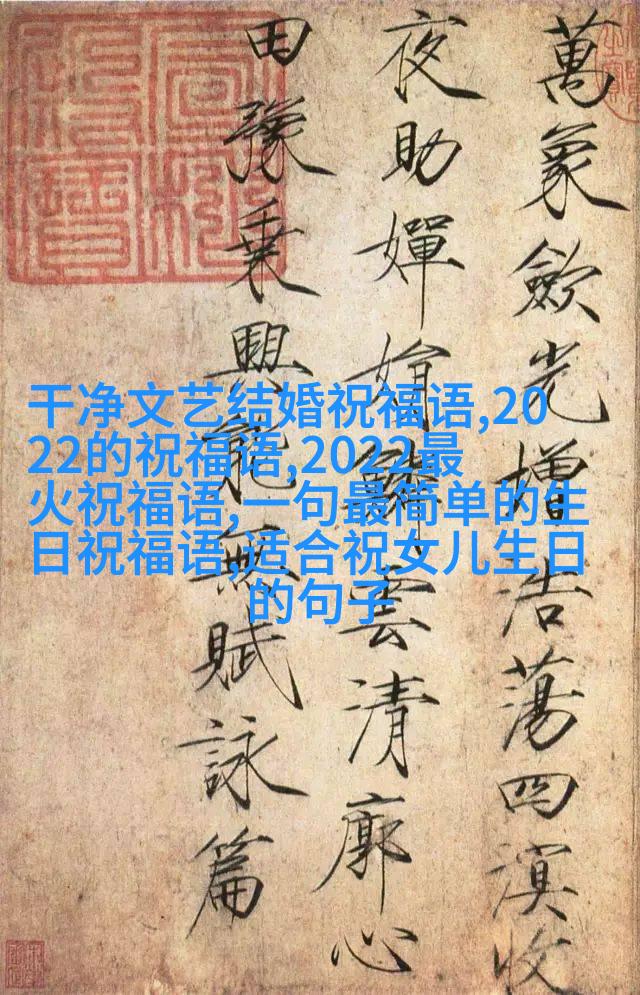 萬象歛光增浩蕩四溟收
夜助嬋娟鱗雲清廓心
田豫乘興能無賦詠篇
干净文艺结婚祝福语,20
22的祝福语,2022最
火祝福语,一句最简单的生
日祝福语,适合祝女儿生日
的句子